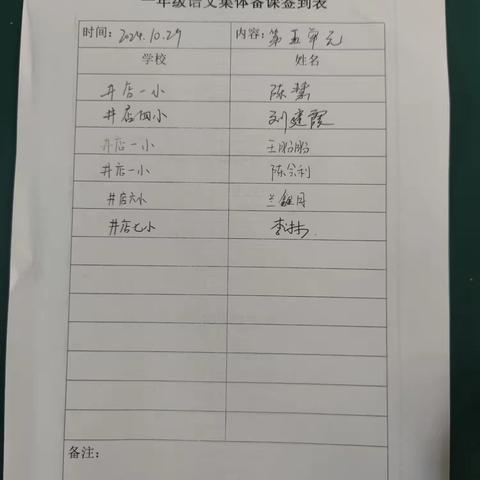 一年级语文集体备课签到表
时间：2024.10.29 内容：第五单元
学校 姓名
井店一小 陈慧
井店四小 刘建霞
井店一小 王盼盼
井店一小
井店六小
井店七小
备注：